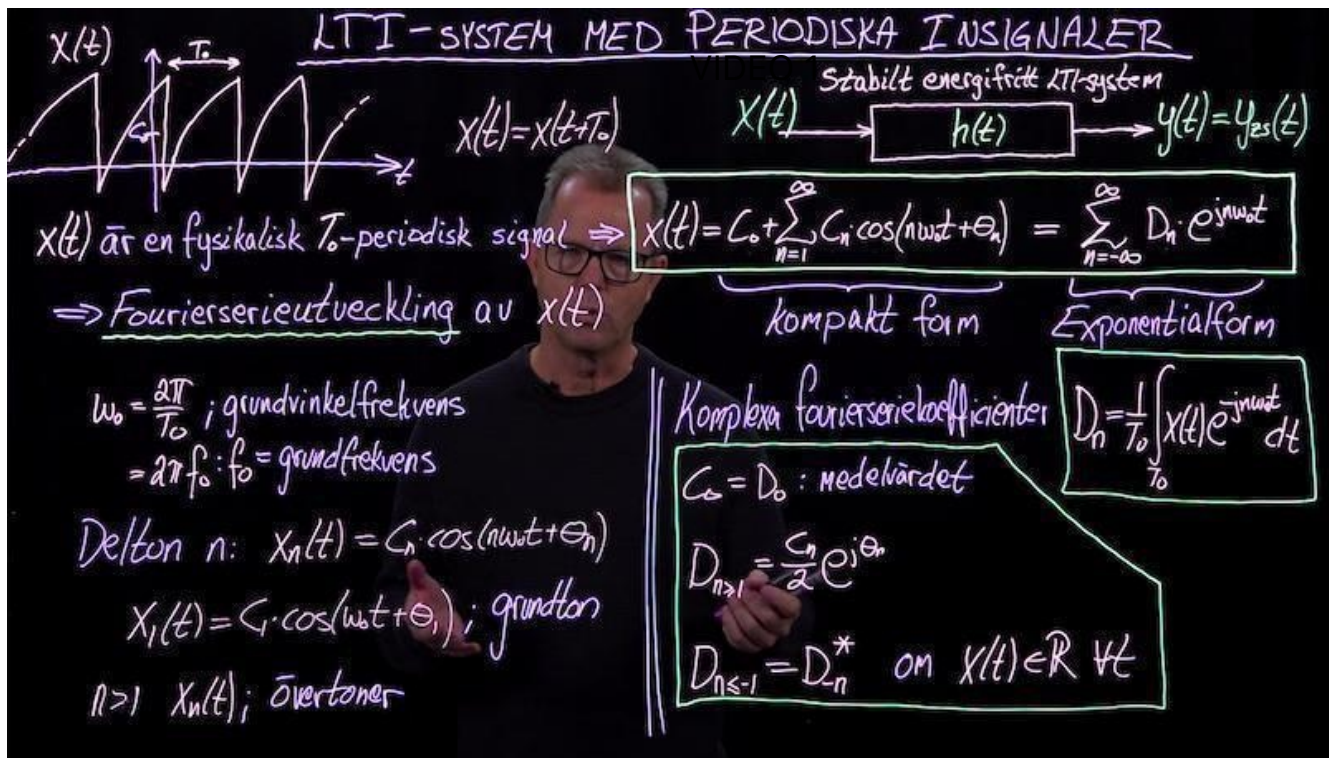 LTI-SYSTEM MED PERIODISKA INSIGNALER
VIDEO 1
x(t)
T₀
C₀
t
x(t)=x(t+T₀)
Stabilt energifritt LTI-system
x(t)
h(t)
y(t)=y_zs(t)
x(t) är en fysikalisk T₀-periodisk signal ⇒ x(t)=C₀+∑_{n=1}^{∞} Cₙ·cos(nω₀t+θₙ) = ∑_{n=-∞}^{∞} Dₙ·e^{jnω₀t}
⇒ Fourierserieutveckling av x(t)
kompakt form
Exponentialform
ω₀ = 2π/T₀ ; grundvinkelfrekvens
= 2πf₀ : f₀ = grundfrekvens
Delton n: xₙ(t) = Cₙ·cos(nω₀t+θₙ)
x₁(t) = C₁·cos(ω₀t+θ₁) ; grundton
n>1 xₙ(t); övertoner
Komplexa fourierseriekoefficienter
Dₙ = 1/T₀ ∫_{T₀} x(t)e^{-jnω₀t} dt
C₀ = D₀ : medelvärdet
D_{n≥1} = Cₙ/2 e^{jθₙ}
D_{n≤-1} = D_{-n}^* om x(t)∈ℝ ∀t